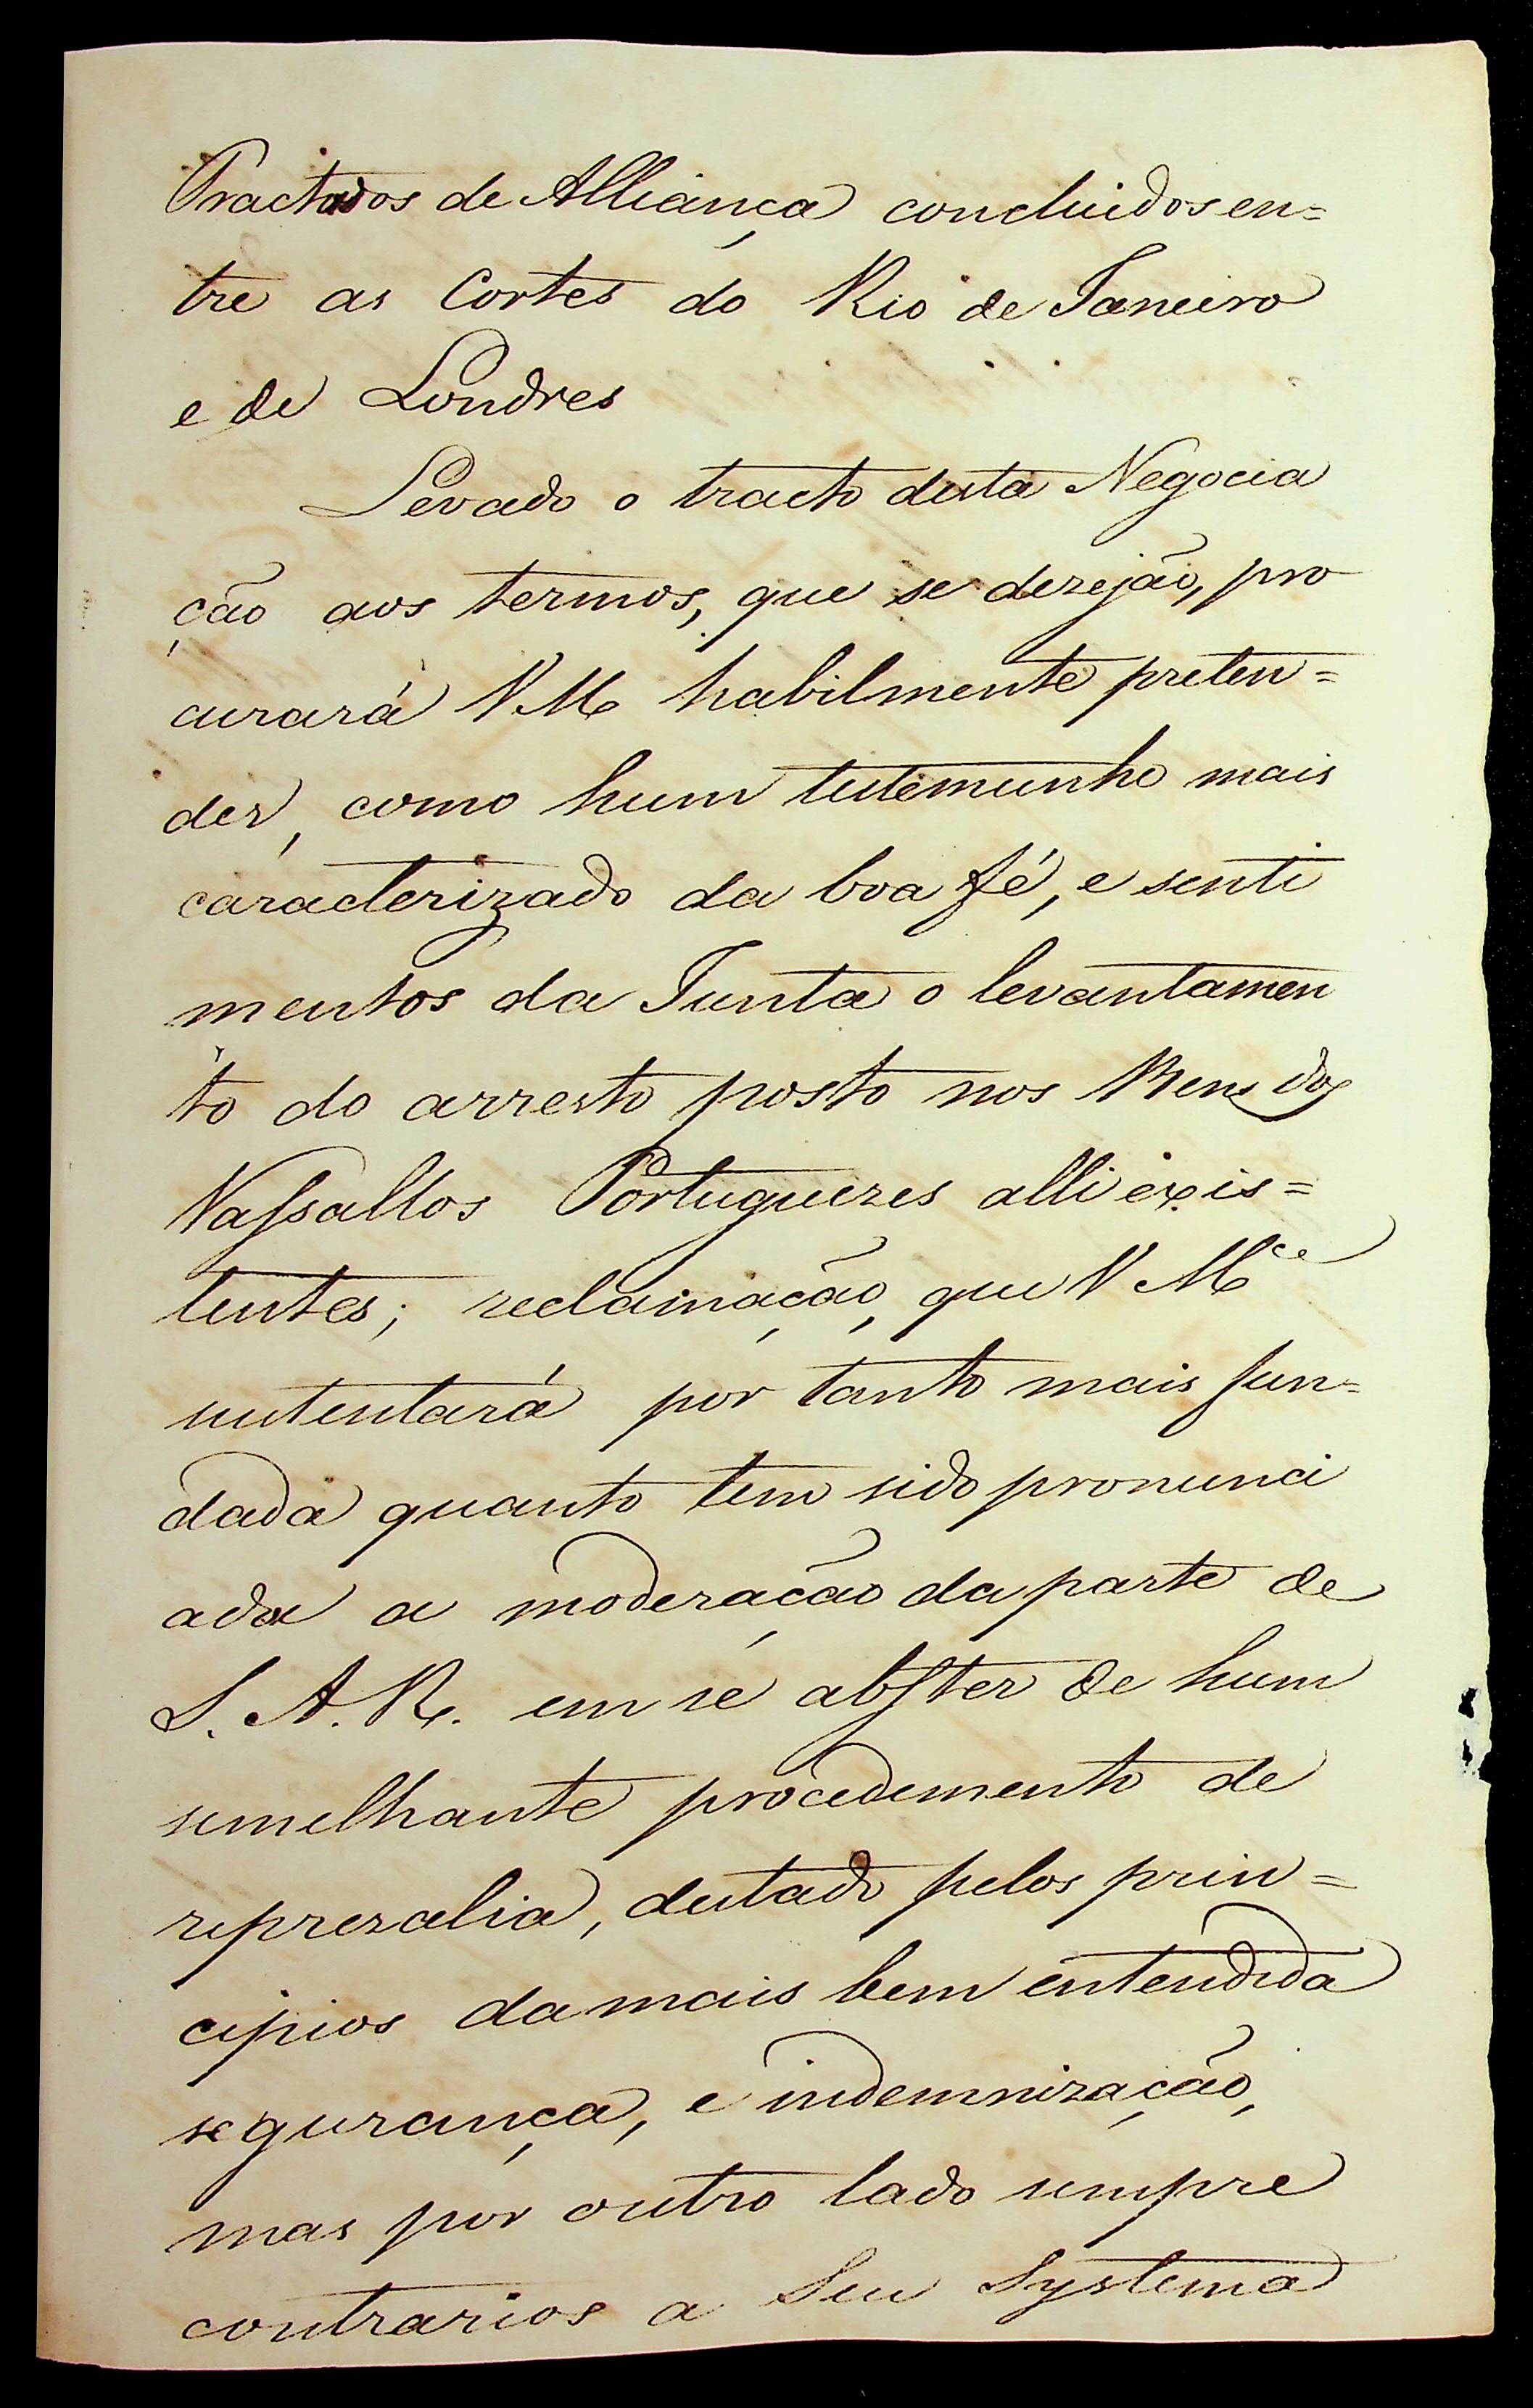 Tractados de Alliança concluidos en=
tre as Cortes do Rio de Janeiro
e de Londres
Levado o tracto desta Negocia
ção aos termos, que se dezejão, pro
curará V. M. habilmente preten=
der, como hum testemunho mais
caracterizado da boa fé, e senti
mentos da Junta o levantamen
to do arresto posto nos Bens dos
Vassallos Portuguezes alli exis=
tentes; reclamação, que V. M.ce
sustentará por tanto mais fun=
dada quanto tem sido pronunci
ada a moderação da parte de
S. A. R. em se abster de hum
semelhante procedemento de
reprezalia, dictado pelos prin=
cipios da mais bem entendida
segurança, e indemnização,
mas por outro lado sempre
contrarios a Seu Systema